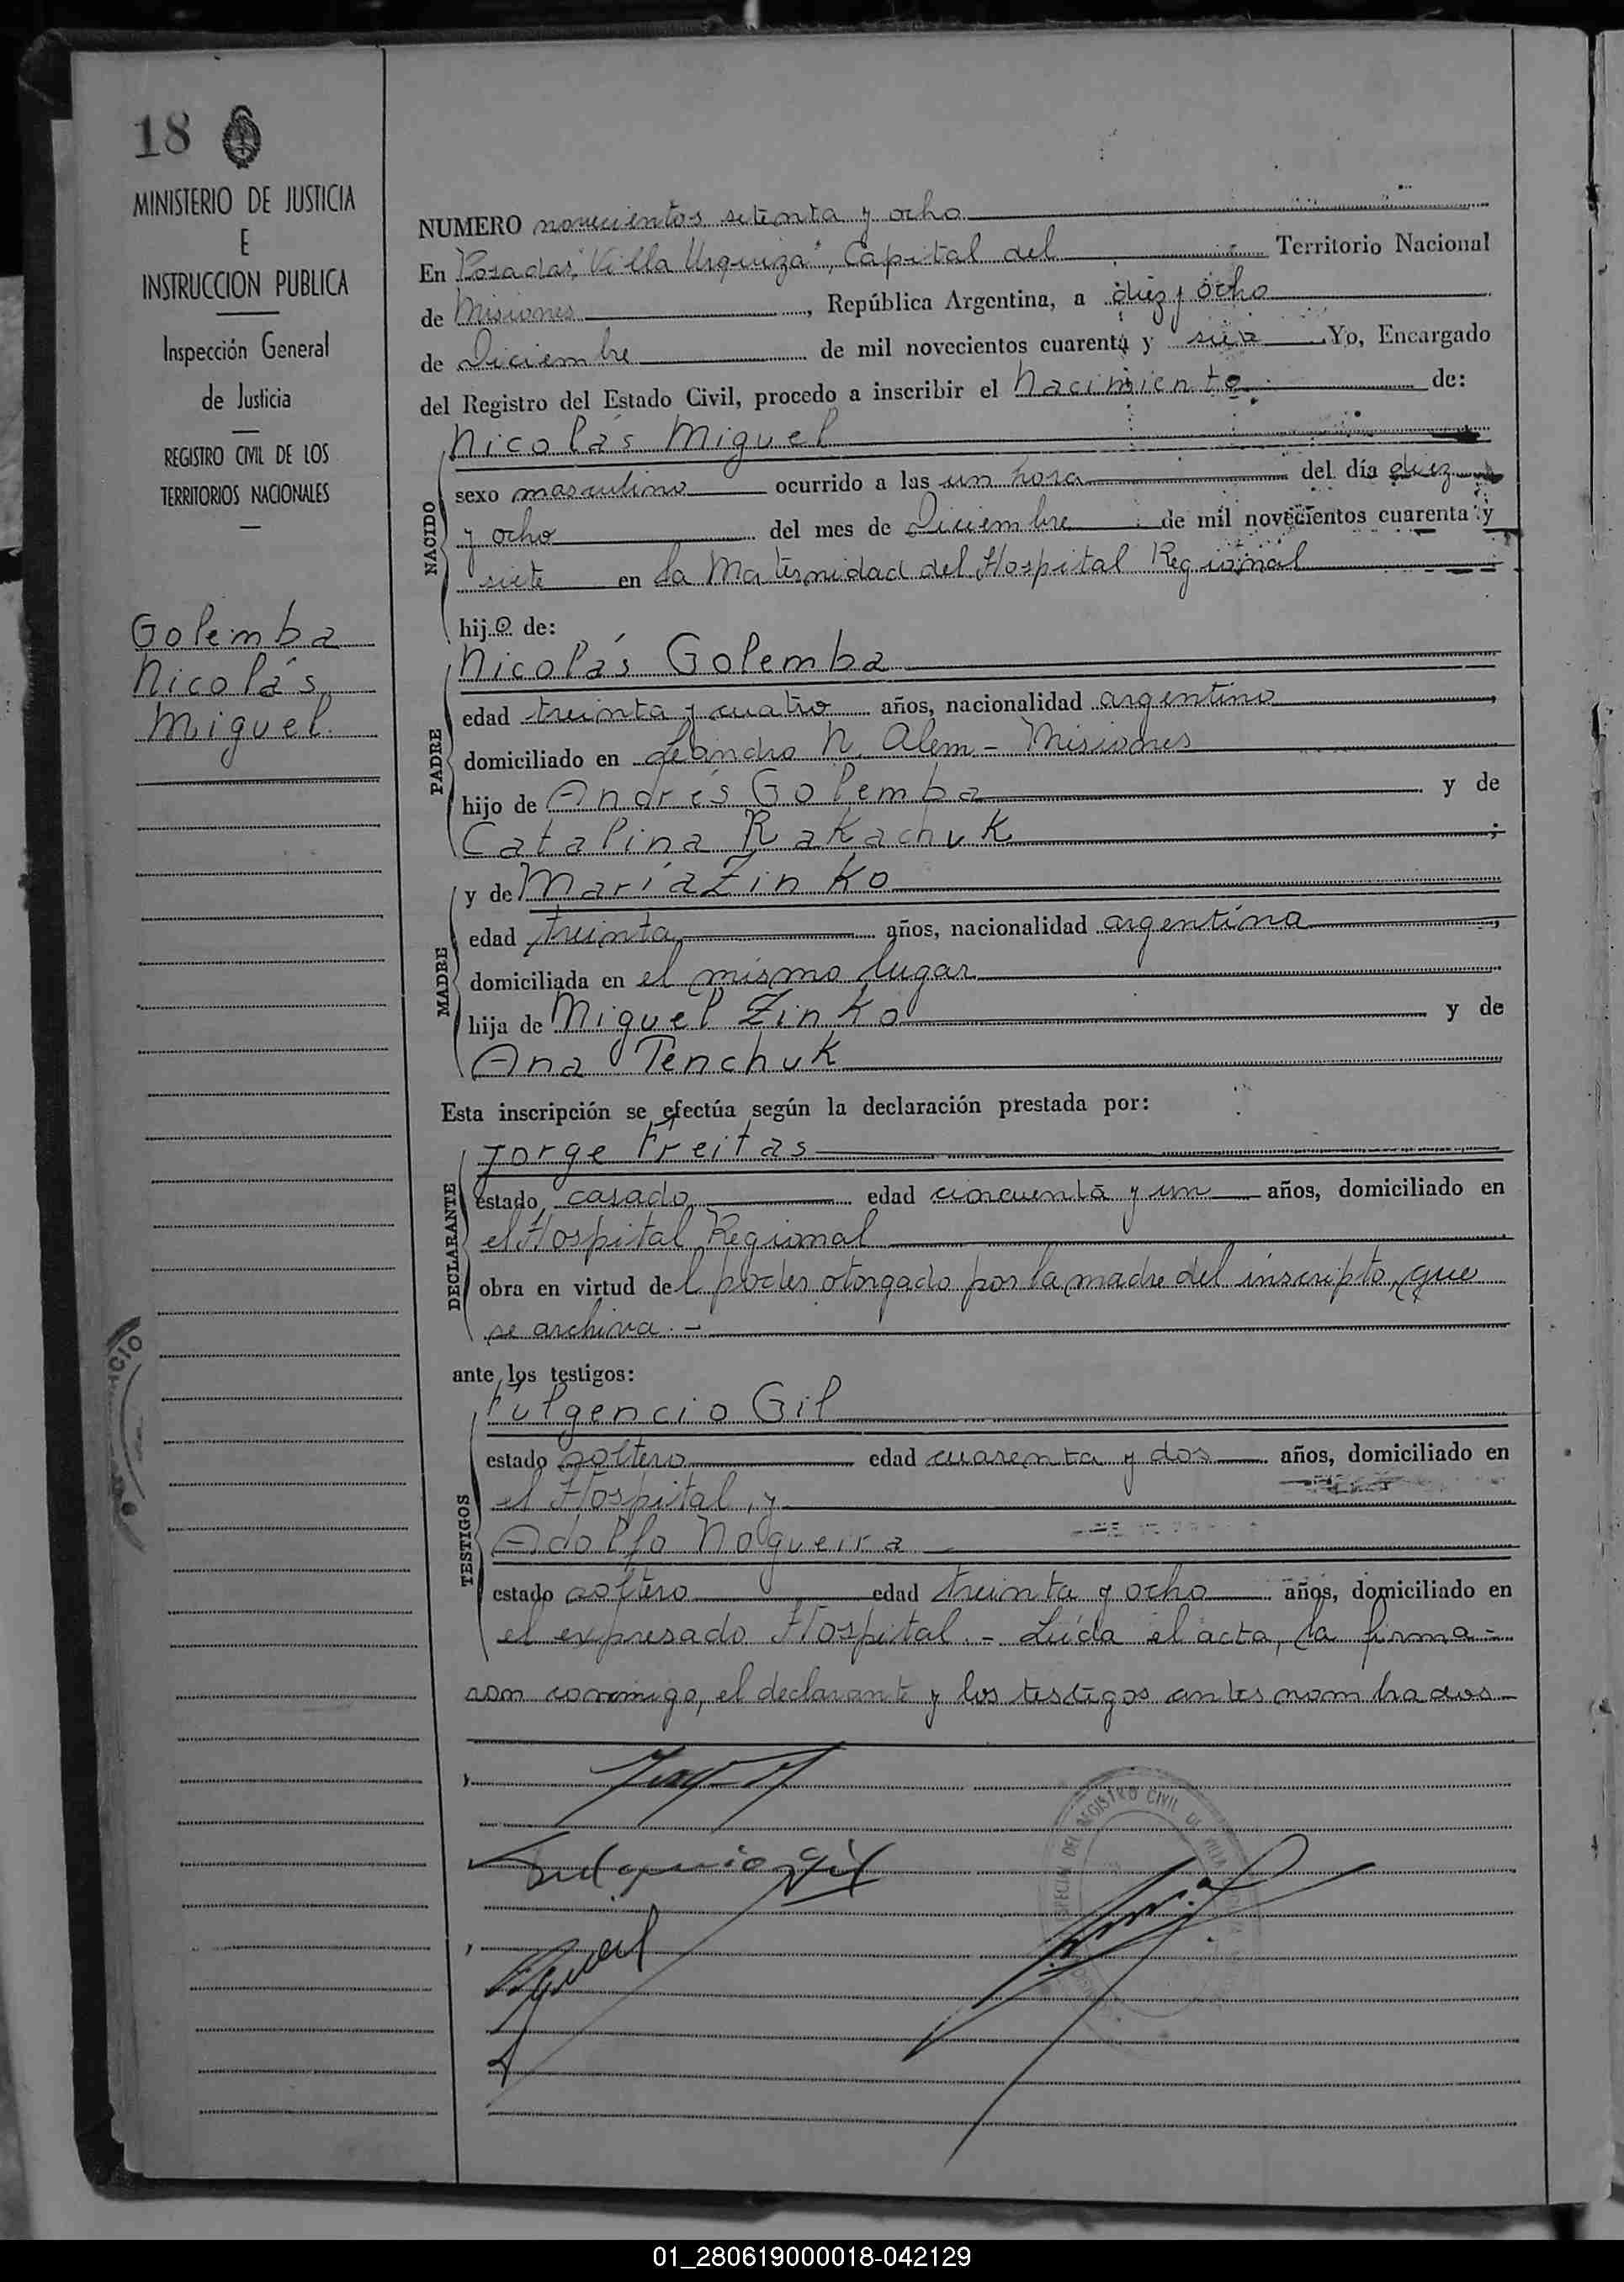 18
MINISTERIO DE JUSTICIA
E
INSTRUCCION PUBLICA
Inspección General
de Justicia
REGISTRO CIVIL DE LOS
TERRITORIOS NACIONALES
Golemba
Nicolás
Miguel.
NUMERO novecientos setenta y ocho
En Posadas, "Villa Urquiza", Capital del Territorio Nacional
de Misiones, República Argentina, a diez y ocho
de Diciembre de mil novecientos cuarenta y siete Yo, Encargado
del Registro del Estado Civil, procedo a inscribir el nacimiento de:
NACIDO
Nicolás Miguel
sexo masculino ocurrido a las un hora del día diez
y ocho del mes de Diciembre de mil novecientos cuarenta y
siete en la Maternidad del Hospital Regional
hijo de:
PADRE
Nicolás Golemba
edad treinta y cuatro años, nacionalidad argentino,
domiciliado en Leandro N. Alem - Misiones
hijo de Andrés Golemba y de
Catalina Rakachuk;
MADRE
y de María Zinko
edad treinta años, nacionalidad argentina,
domiciliada en el mismo lugar
hija de Miguel Zinko y de
Ana Tenchuk
Esta inscripción se efectúa según la declaración prestada por:
DECLARANTE
Jorge Freitas
estado casado edad cincuenta y un años, domiciliado en
el Hospital Regional
obra en virtud del poder otorgado por la madre del inscripto, que
se archiva.-
ante los testigos:
TESTIGOS
Fulgencio Gil
estado soltero edad cuarenta y dos años, domiciliado en
el Hospital, y
Adolfo Nogueira
estado soltero edad treinta y ocho años, domiciliado en
el expresado Hospital.- Leída el acta, la firma-
ron conmigo, el declarante y los testigos antes nombrados
Fulgencio Gil
DEL REGISTRO CIVIL DE VILLA
01_280619000018-042129